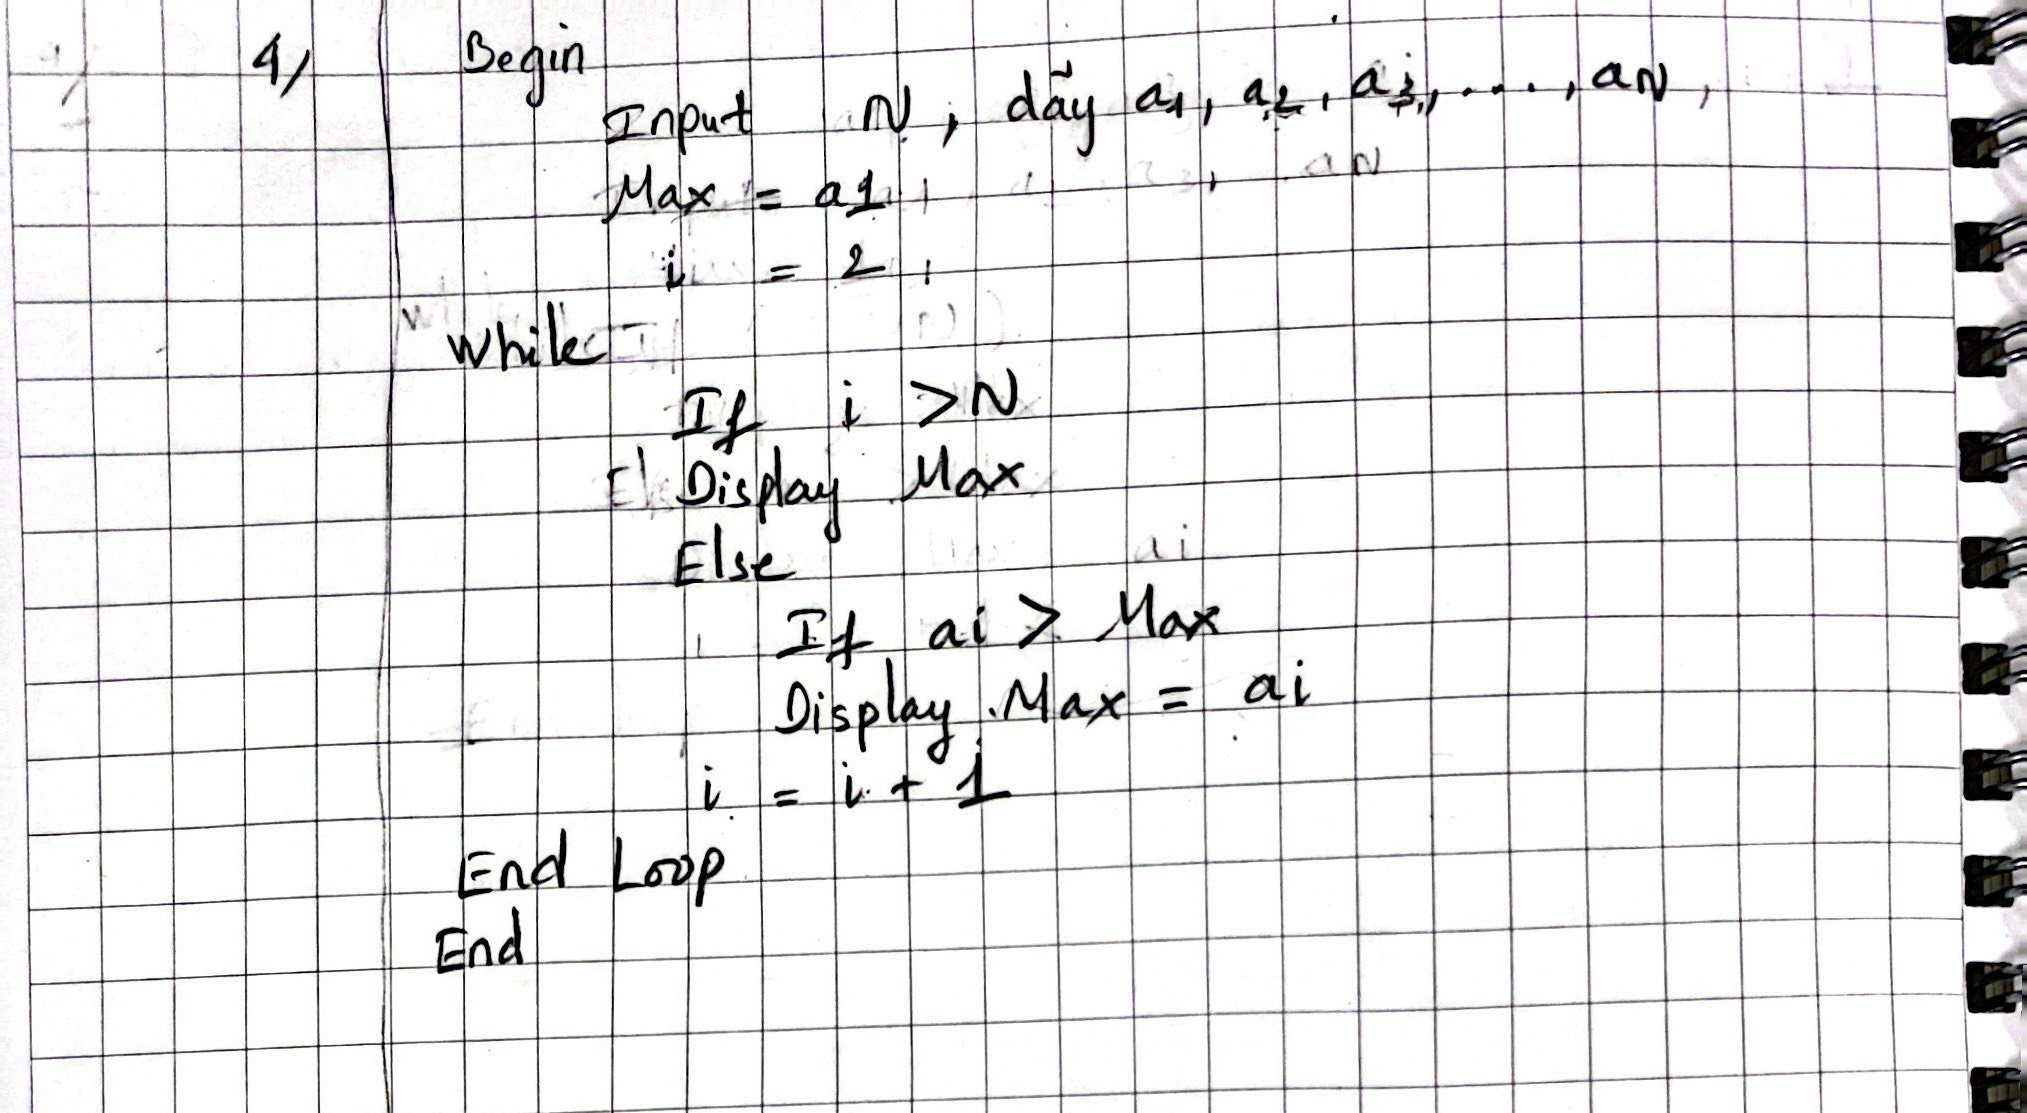 4/ Begin
Input N, dãy a1, a2, a3, ...., aN,
Max = a1,
i = 2,
While
If i > N
Display Max
Else
If ai > Max
Display Max = ai
i = i + 1
End Loop
End